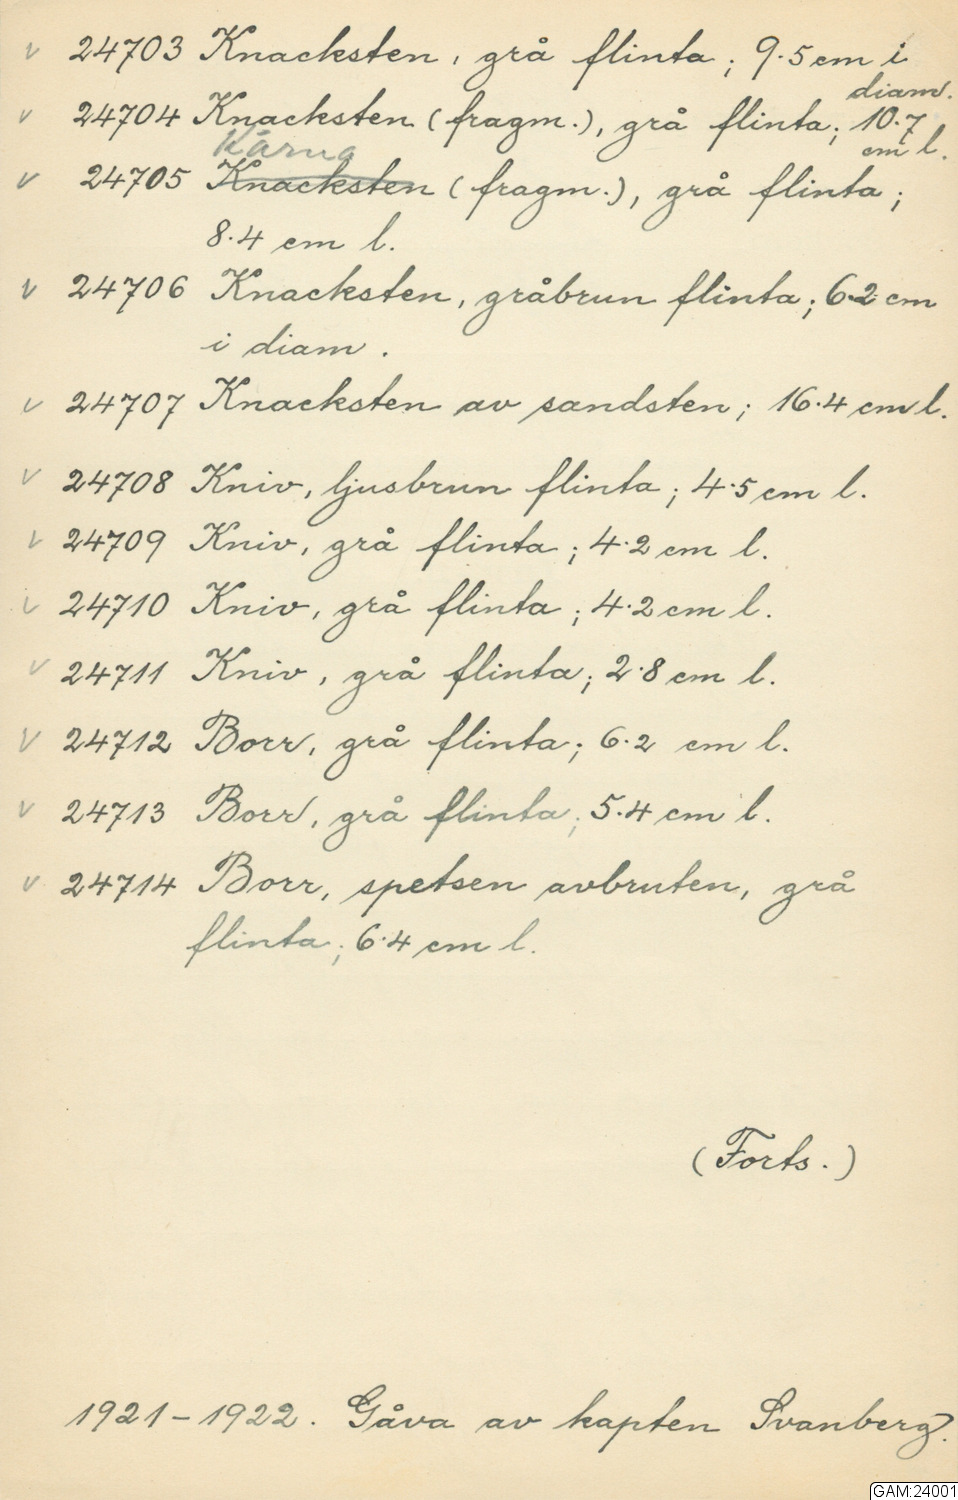 v 24703 Knacksten, grå flinta; 9.5 cm i
diam.
v 24704 Knacksten (fragm.), grå flinta; 10.7
cm l.
Kärna
v 24705 Knacksten (fragm.), grå flinta;
8.4 cm l.
v 24706 Knacksten, gråbrun flinta; 6.2 cm
i diam.
v 24707 Knacksten av sandsten; 16.4 cm l.
v 24708 Kniv, ljusbrun flinta; 4.5 cm l.
v 24709 Kniv, grå flinta; 4.2 cm l.
v 24710 Kniv, grå flinta; 4.2 cm l.
v 24711 Kniv, grå flinta; 2.8 cm l.
v 24712 Borr, grå flinta; 6.2 cm l.
v 24713 Borr, grå flinta; 5.4 cm l.
v 24714 Borr, spetsen avbruten, grå
flinta; 6.4 cm l.
(Forts.)
1921-1922. Gåva av kapten Svanberg.
GAM:24001